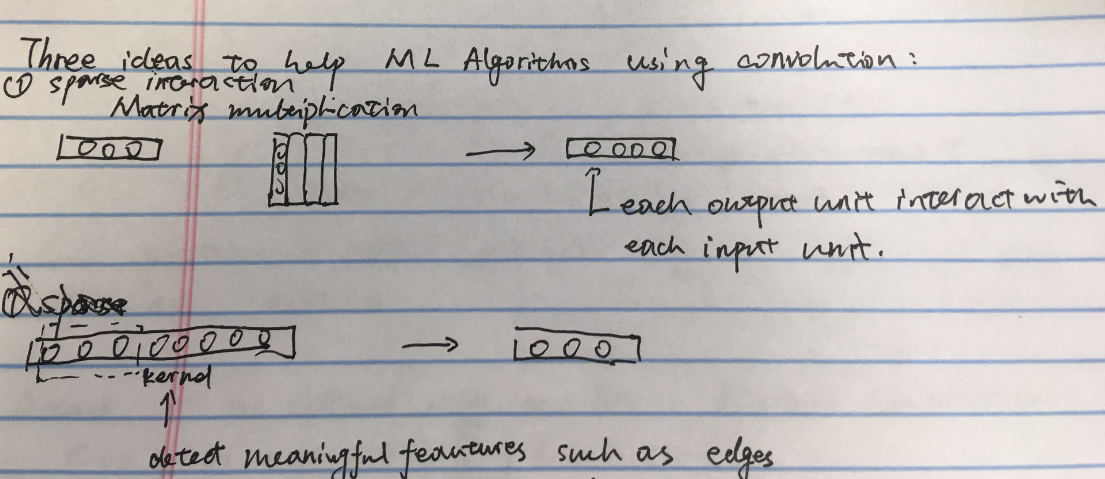 Three ideas to help ML Algorithms using convolution:
① sparse interaction
Matrix multiplication
each output unit interact with
each input unit.
kernel
detect meaningful feautures such as edges